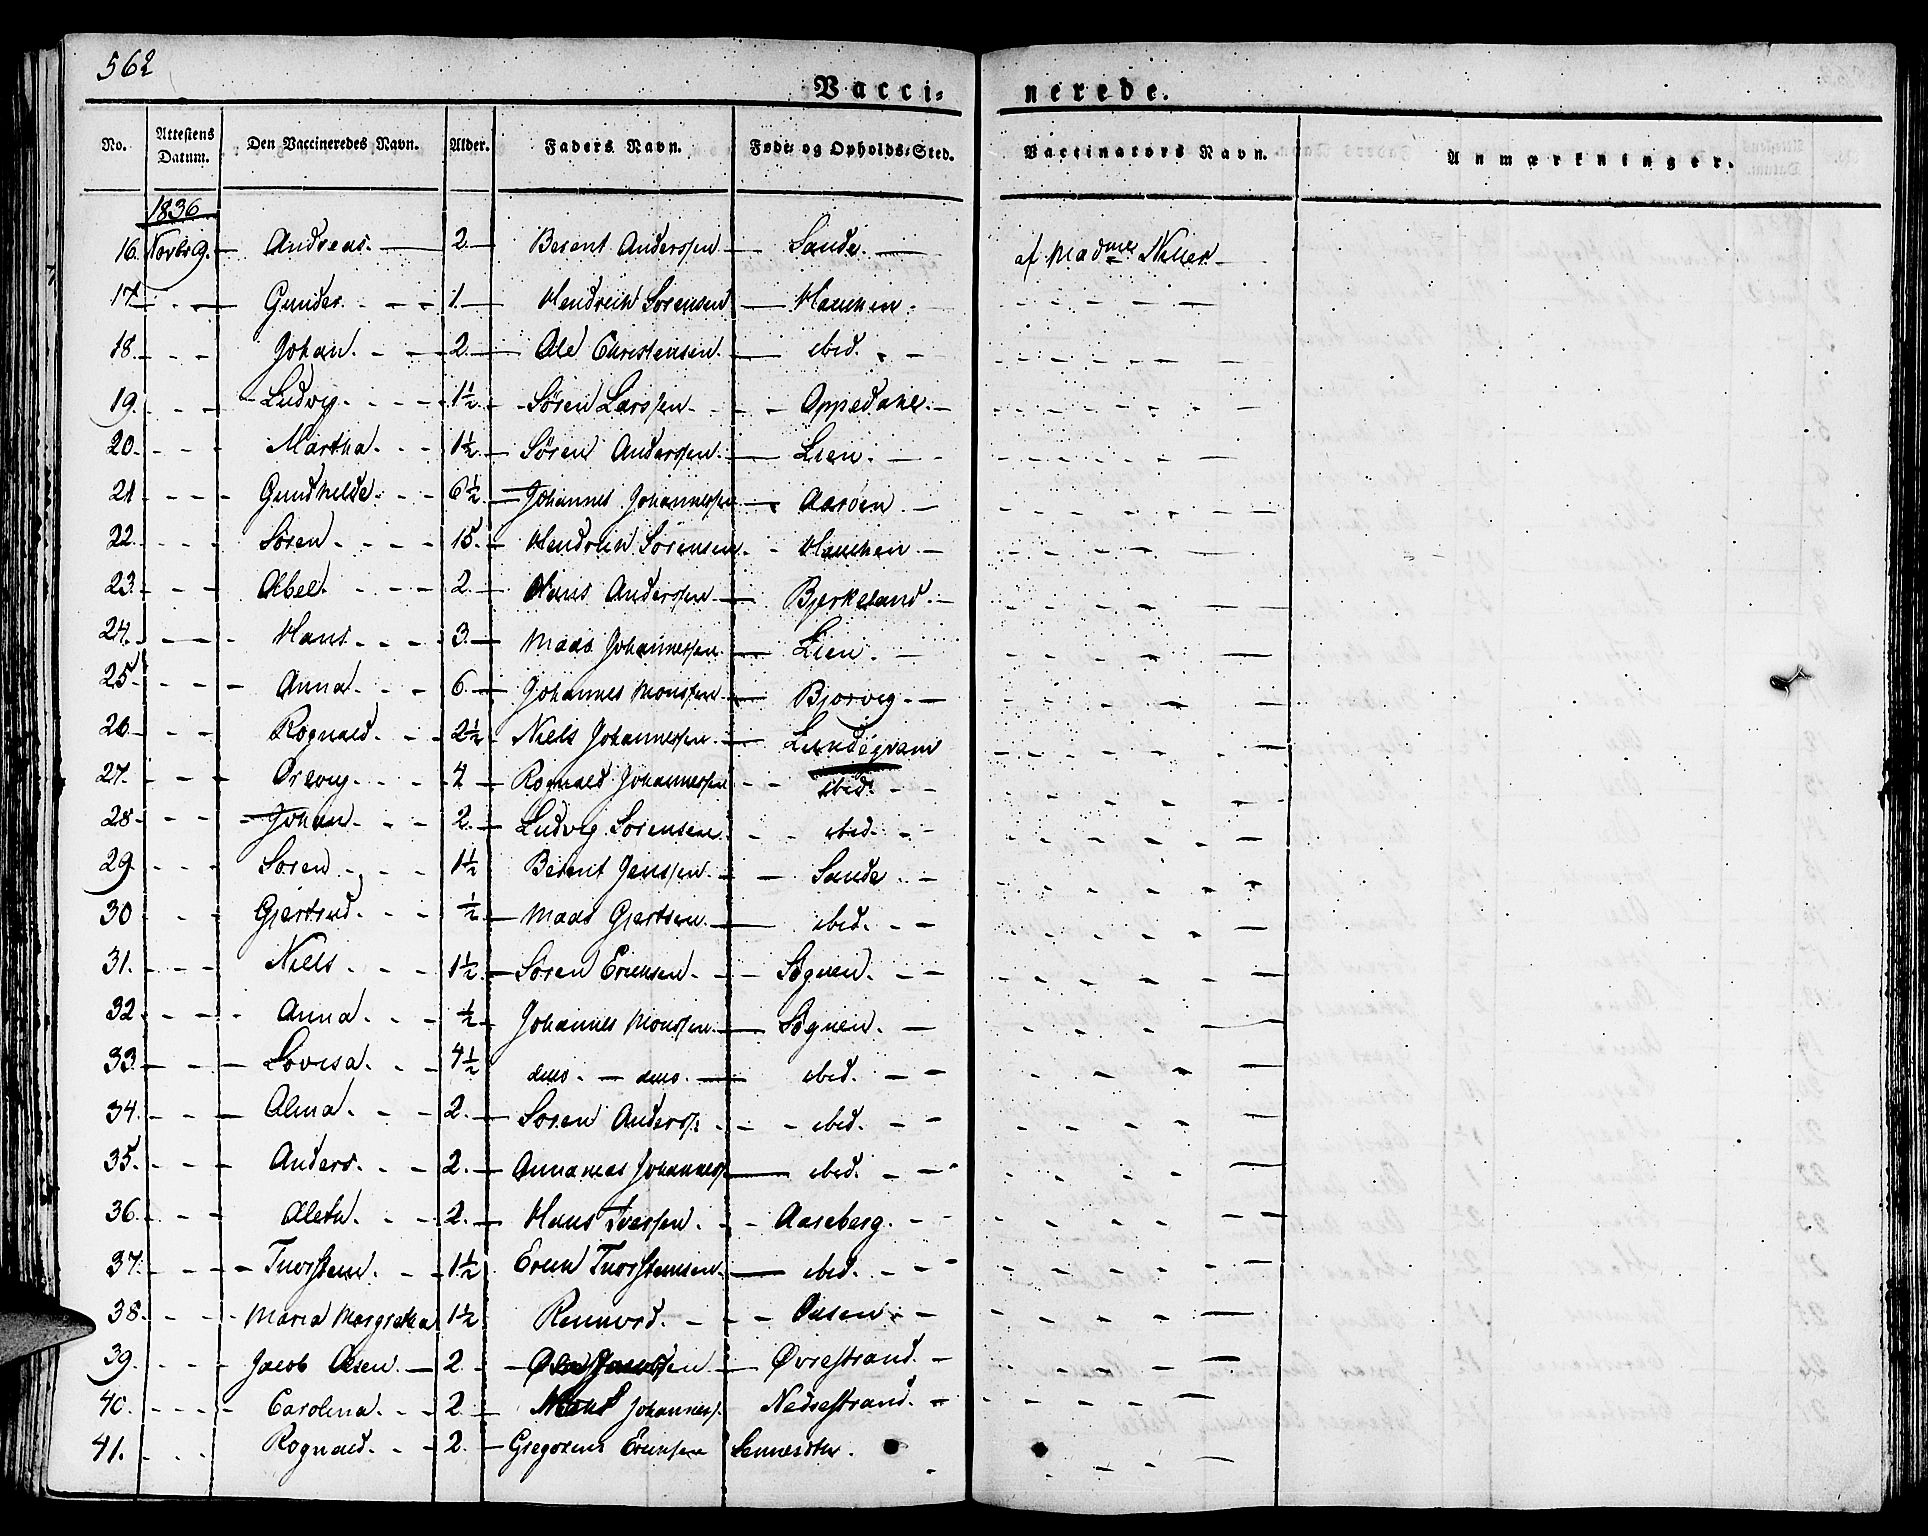 562
Vacci= nerede.
No. Attestens Datum. Den Vaccineredes Navn. Alder. Faders Navn. Føde= og Opholds=Sted. Vaccinators Navn. Anmærkninger.
1836
16. Novbr 9. - Andreas. - 2. - Berent Anderssen - Sande. - af Madme
17. - - Gunder. - - 1. - Hendrich Sørensen - - - - -
18. - - Johan. - - 2. - Ole Christensen. - ibid. - - - - -
19. - - Ludvig. - - 1½. - Søren Larssen. - - Oppedahl. - - - - -
20. - - Martha. - - 1½. - Søren Anderssen. - Lien. - - - - -
21. - - Gundhilde. - 6½. - Johannes Johannessen - Aarøen. - - - - -
22. - - Søren. - - 15. - Hendrich Sørensen. - - - - -
23. - - Abel. - - 2. - Hans Anderssen. - Bjerkeland. - - - - -
24. - - Hans. - - 3. - Maas Johannessen. - Lien. - - - - -
25. - - Anna. - - 6. - Johannes Monssen. - Bjørvig. - - - - -
26. - - Rognald. - - 2½ - Niels Johannessen. - - - - -
27. - - - 4 - Rognald Johannessen - - ibid. - - - - -
28. - - Johan. - - 2. - Ludvig Sørensen. - - ibid. - - - - -
29. - - Søren. - - 1½ Berent Jenssen. - - Sande. - - - - -
30 - - Gjertrud. - - ½ - Maas Gjertsen. - ibid. - - - - -
31. - - Niels. - - 1½. - Søren Erichsen. - - Sognen. - - - - -
32 - - Anna. - - ½ - Johannes Monssen. - Sognen. - - - - -
33. - - Lovisa. - - 4½ dito. - dito. - ibid. - - - - -
34. - - Alma. - - 2. - Søren Anderss: - - ibid. - - - - -
35. - - Anders. - - 2. - Annanias Johanness - ibid. - - - - -
36. - - - - 2. - Hans Iverssen. - - Aaseberg. - - - - -
37. - - Thorsten. - - 1½ Erich Thorstensen. - ibid. - - - - -
38. - - Maria Margretha 1½ - - - - - -
39. - - Jacob Olsen. - 2. - - Øvrestrand. - - - - -
40. - - Carolina. - - 2. - Johanness. Nedrestrand. - - - - -
41. - - Rognald. - - 2. - Gregorius Erichsen - - - -